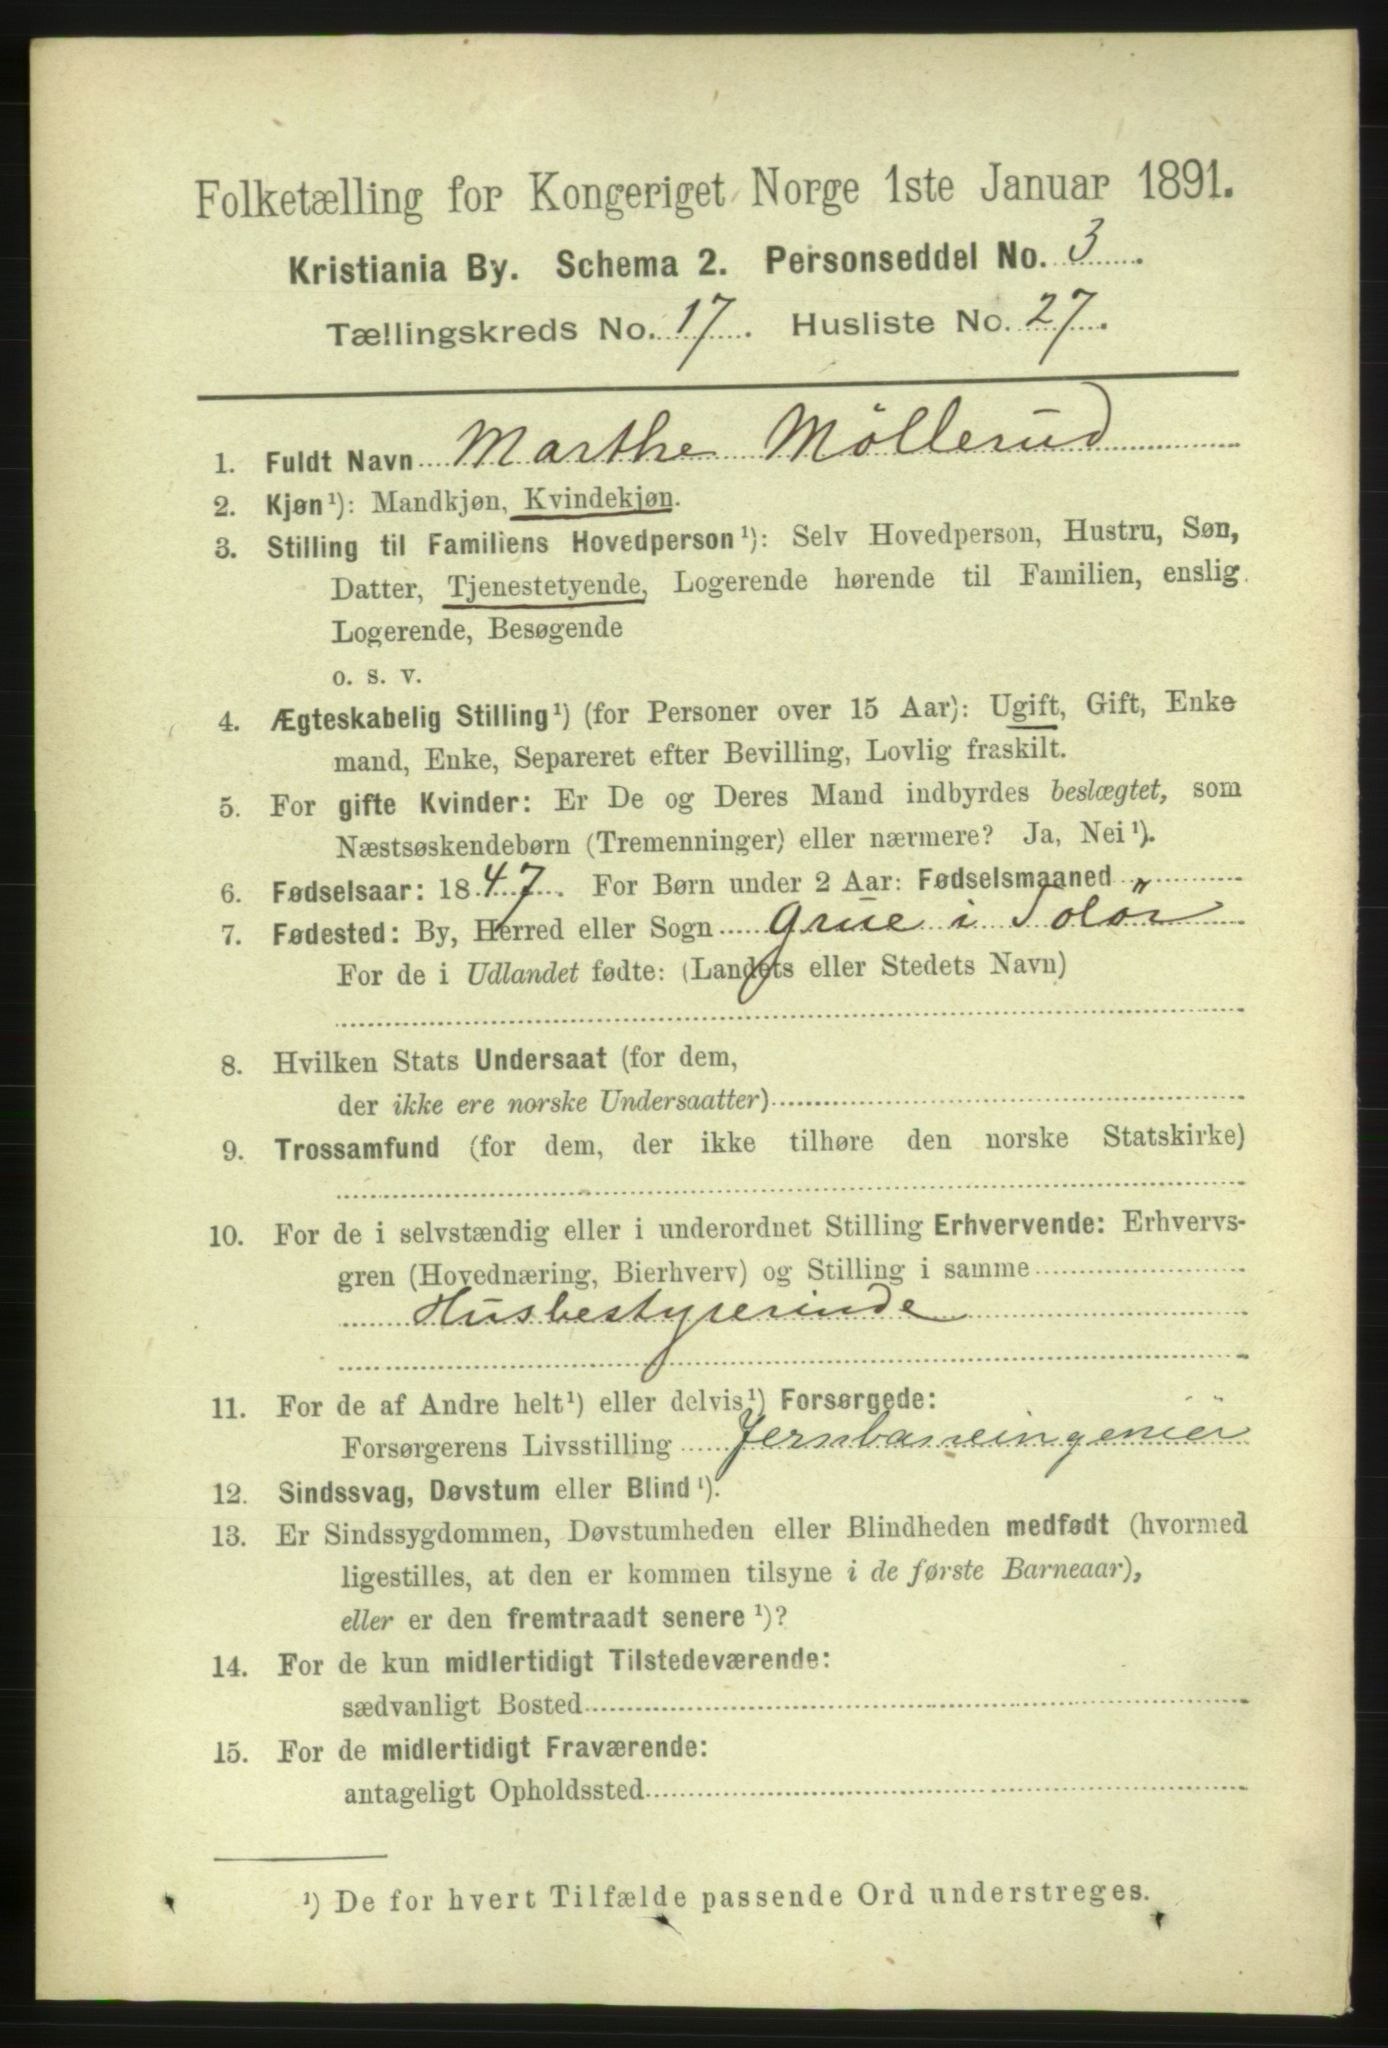 Folketælling for Kongeriget Norge 1ste Januar 1891.
Kristiania By. Schema 2. Personseddel No. 3.
Tællingskreds No. 17. Husliste No. 27.
1. Fuldt Navn Marthe Möllerud
2. Kjøn¹): Mandkjøn, Kvindekjøn.
3. Stilling til Familiens Hovedperson¹): Selv Hovedperson, Hustru, Søn,
Datter, Tjenestetyende, Logerende hørende til Familien, enslig
Logerende, Besøgende
o. s. v.
4. Ægteskabelig Stilling¹) (for Personer over 15 Aar): Ugift, Gift, Enke-
mand, Enke, Separeret efter Bevilling, Lovlig fraskilt.
5. For gifte Kvinder: Er De og Deres Mand indbyrdes beslægtet, som
Næstsøskendebørn (Tremenninger) eller nærmere? Ja, Nei¹).
6. Fødselsaar: 1847. For Børn under 2 Aar: Fødselsmaaned
7. Fødested: By, Herred eller Sogn Grue i Solör
For de i Udlandet fødte: (Landets eller Stedets Navn)
8. Hvilken Stats Undersaat (for dem,
der ikke ere norske Undersaatter)
9. Trossamfund (for dem, der ikke tilhøre den norske Statskirke)
10. For de i selvstændig eller i underordnet Stilling Erhvervende: Erhvervs-
gren (Hovednæring, Bierhverv) og Stilling i samme
Husbestyrerinde
11. For de af Andre helt¹) eller delvis¹) Forsørgede:
Forsørgerens Livsstilling Jernbaneingeniör
12. Sindssvag, Døvstum eller Blind¹).
13. Er Sindssygdommen, Døvstumheden eller Blindheden medfødt (hvormed
ligestilles, at den er kommen tilsyne i de første Barneaar),
eller er den fremtraadt senere¹)?
14. For de kun midlertidigt Tilstedeværende:
sædvanligt Bosted
15. For de midlertidigt Fraværende:
antageligt Opholdssted
¹) De for hvert Tilfælde passende Ord understreges.